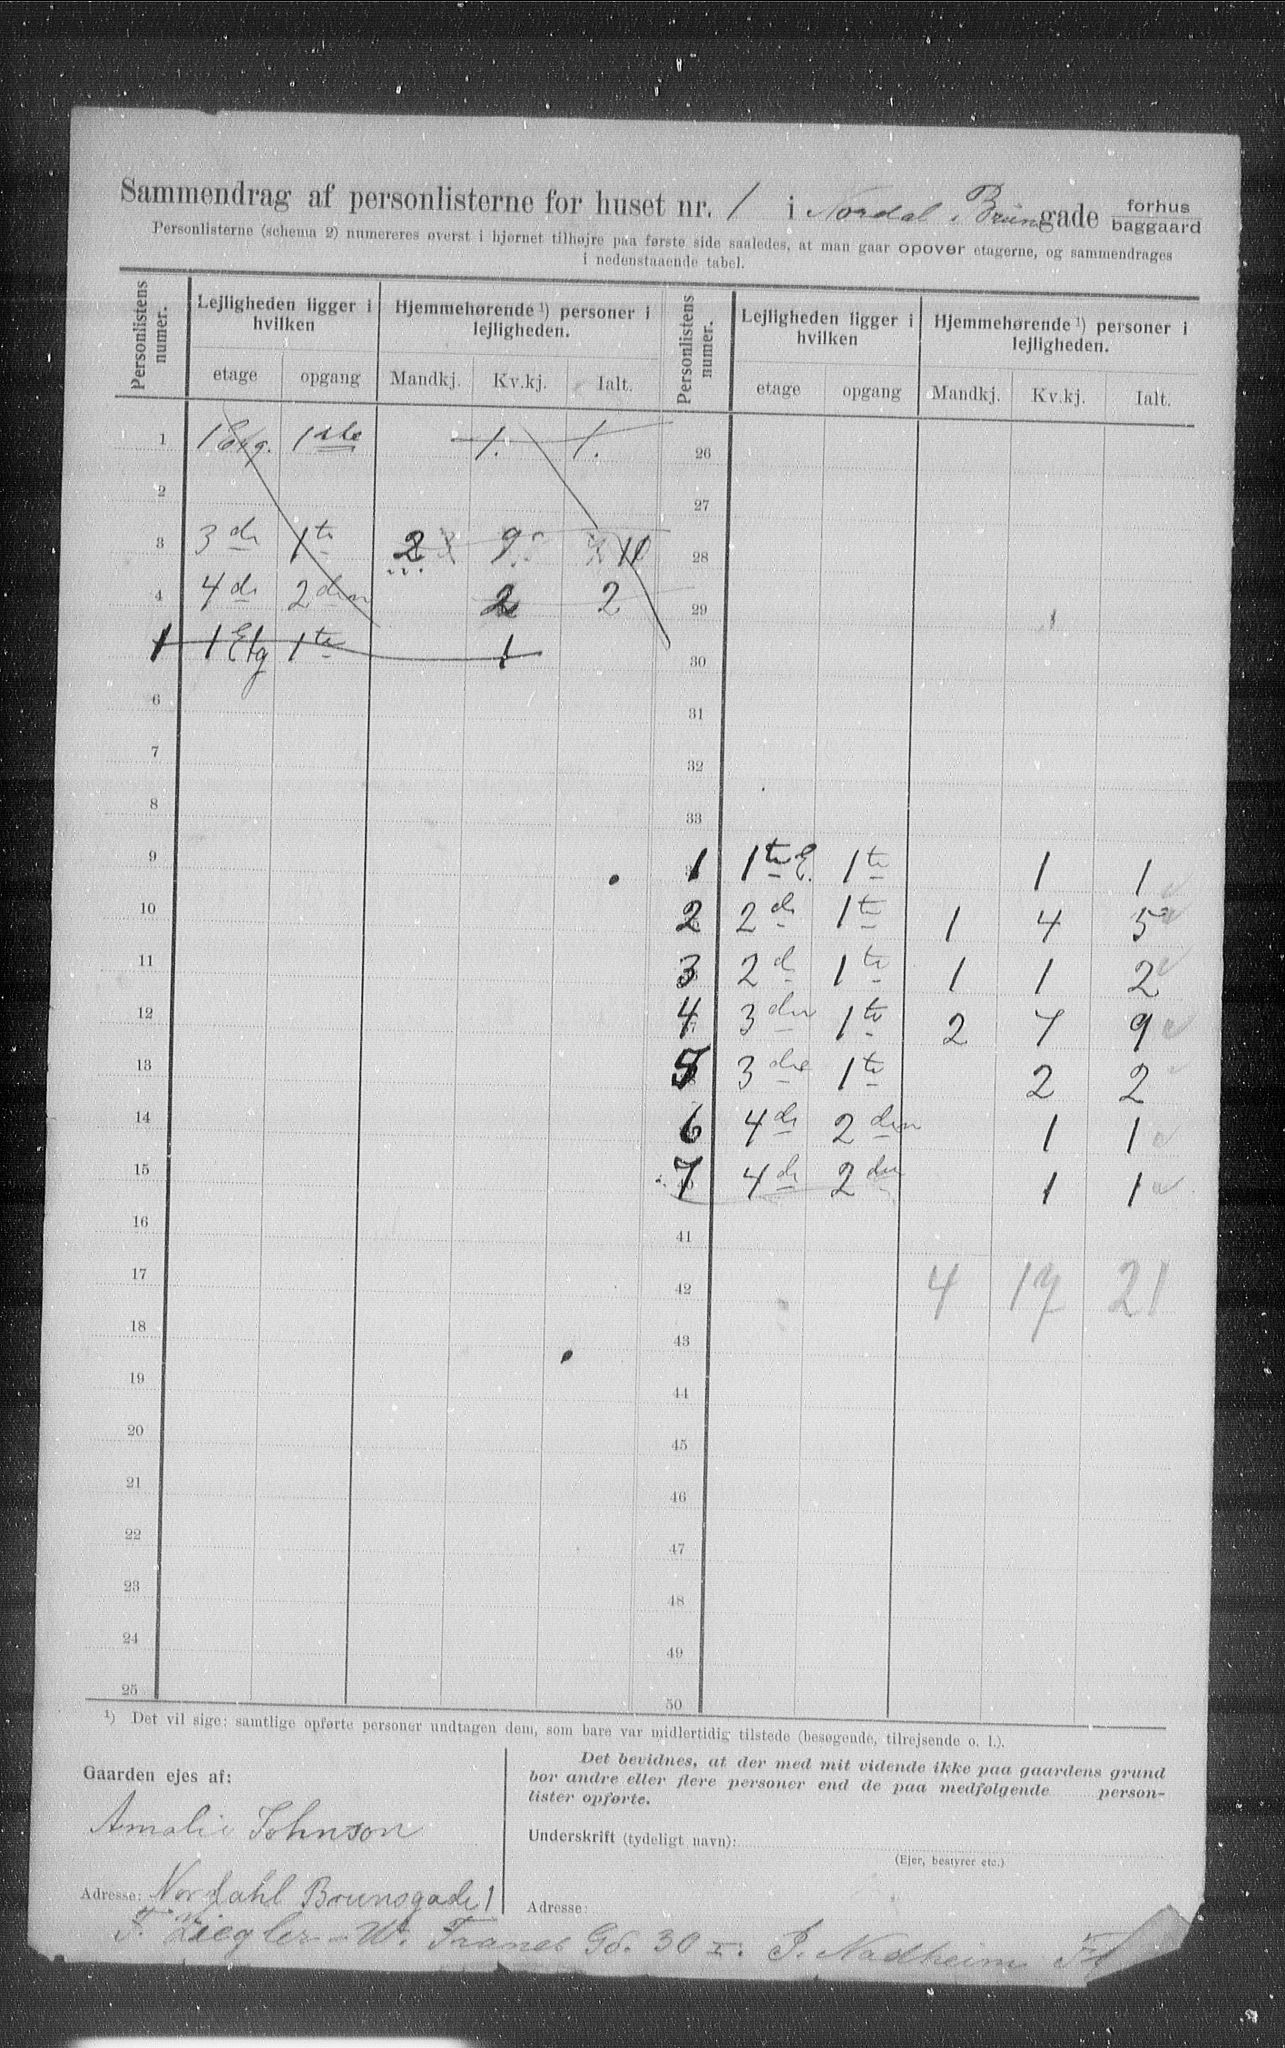 Sammendrag af personlisterne for huset nr. 1 i Nordal Brunsgade forhus baggaard
Personlisterne (schema 2) numereres øverst i hjørnet tilhøjre paa første side saaledes, at man gaar opover etagerne, og sammendrages
i nedenstaaende tabel.
Personlistens numer. Lejligheden ligger i hvilken Hjemmehørende ¹) personer i lejligheden. Personlistens numer. Lejligheden ligger i hvilken Hjemmehørende ¹) personer i lejligheden.
etage opgang Mandkj. Kv.kj. Ialt. etage opgang Mandkj. Kv.kj. Ialt.
1 1 Etg. 1ste 1. 1. 26
2 27
3 3de 1te 2 9 11 28
4 4de 2den 2 2 29
1 1 Etg 1te 1 30
6 31
7 32
8 33
9 1 1te E. 1te 1 1
10 2 2de 1te 1 4 5
11 3 2d 1te 1 1 2
12 4 3den 1te 2 7 9
13 5 3die 1te 2 2
14 6 4de 2den 1 1
15 7 4de 2den 1 1
16 41
17 42 4 17 21
18 43
19 44
20 45
21 46
22 47
23 48
24 49
25 50
¹) Det vil sige: samtlige opførte personer undtagen dem, som bare var midlertidig tilstede (besøgende, tilrejsende o. l.).
Gaarden ejes af:
Amalie Johnson
Adresse: Nordahl Brunsgade 1
Det bevidnes, at der med mit vidende ikke paa gaardens grund
bor andre eller flere personer end de paa medfølgende person-
lister opførte.
Underskrift (tydeligt navn):
(Ejer, bestyrer etc.)
Adresse:
F. Ziegler W. Tranes Gd. 30 I. J. Nadheim